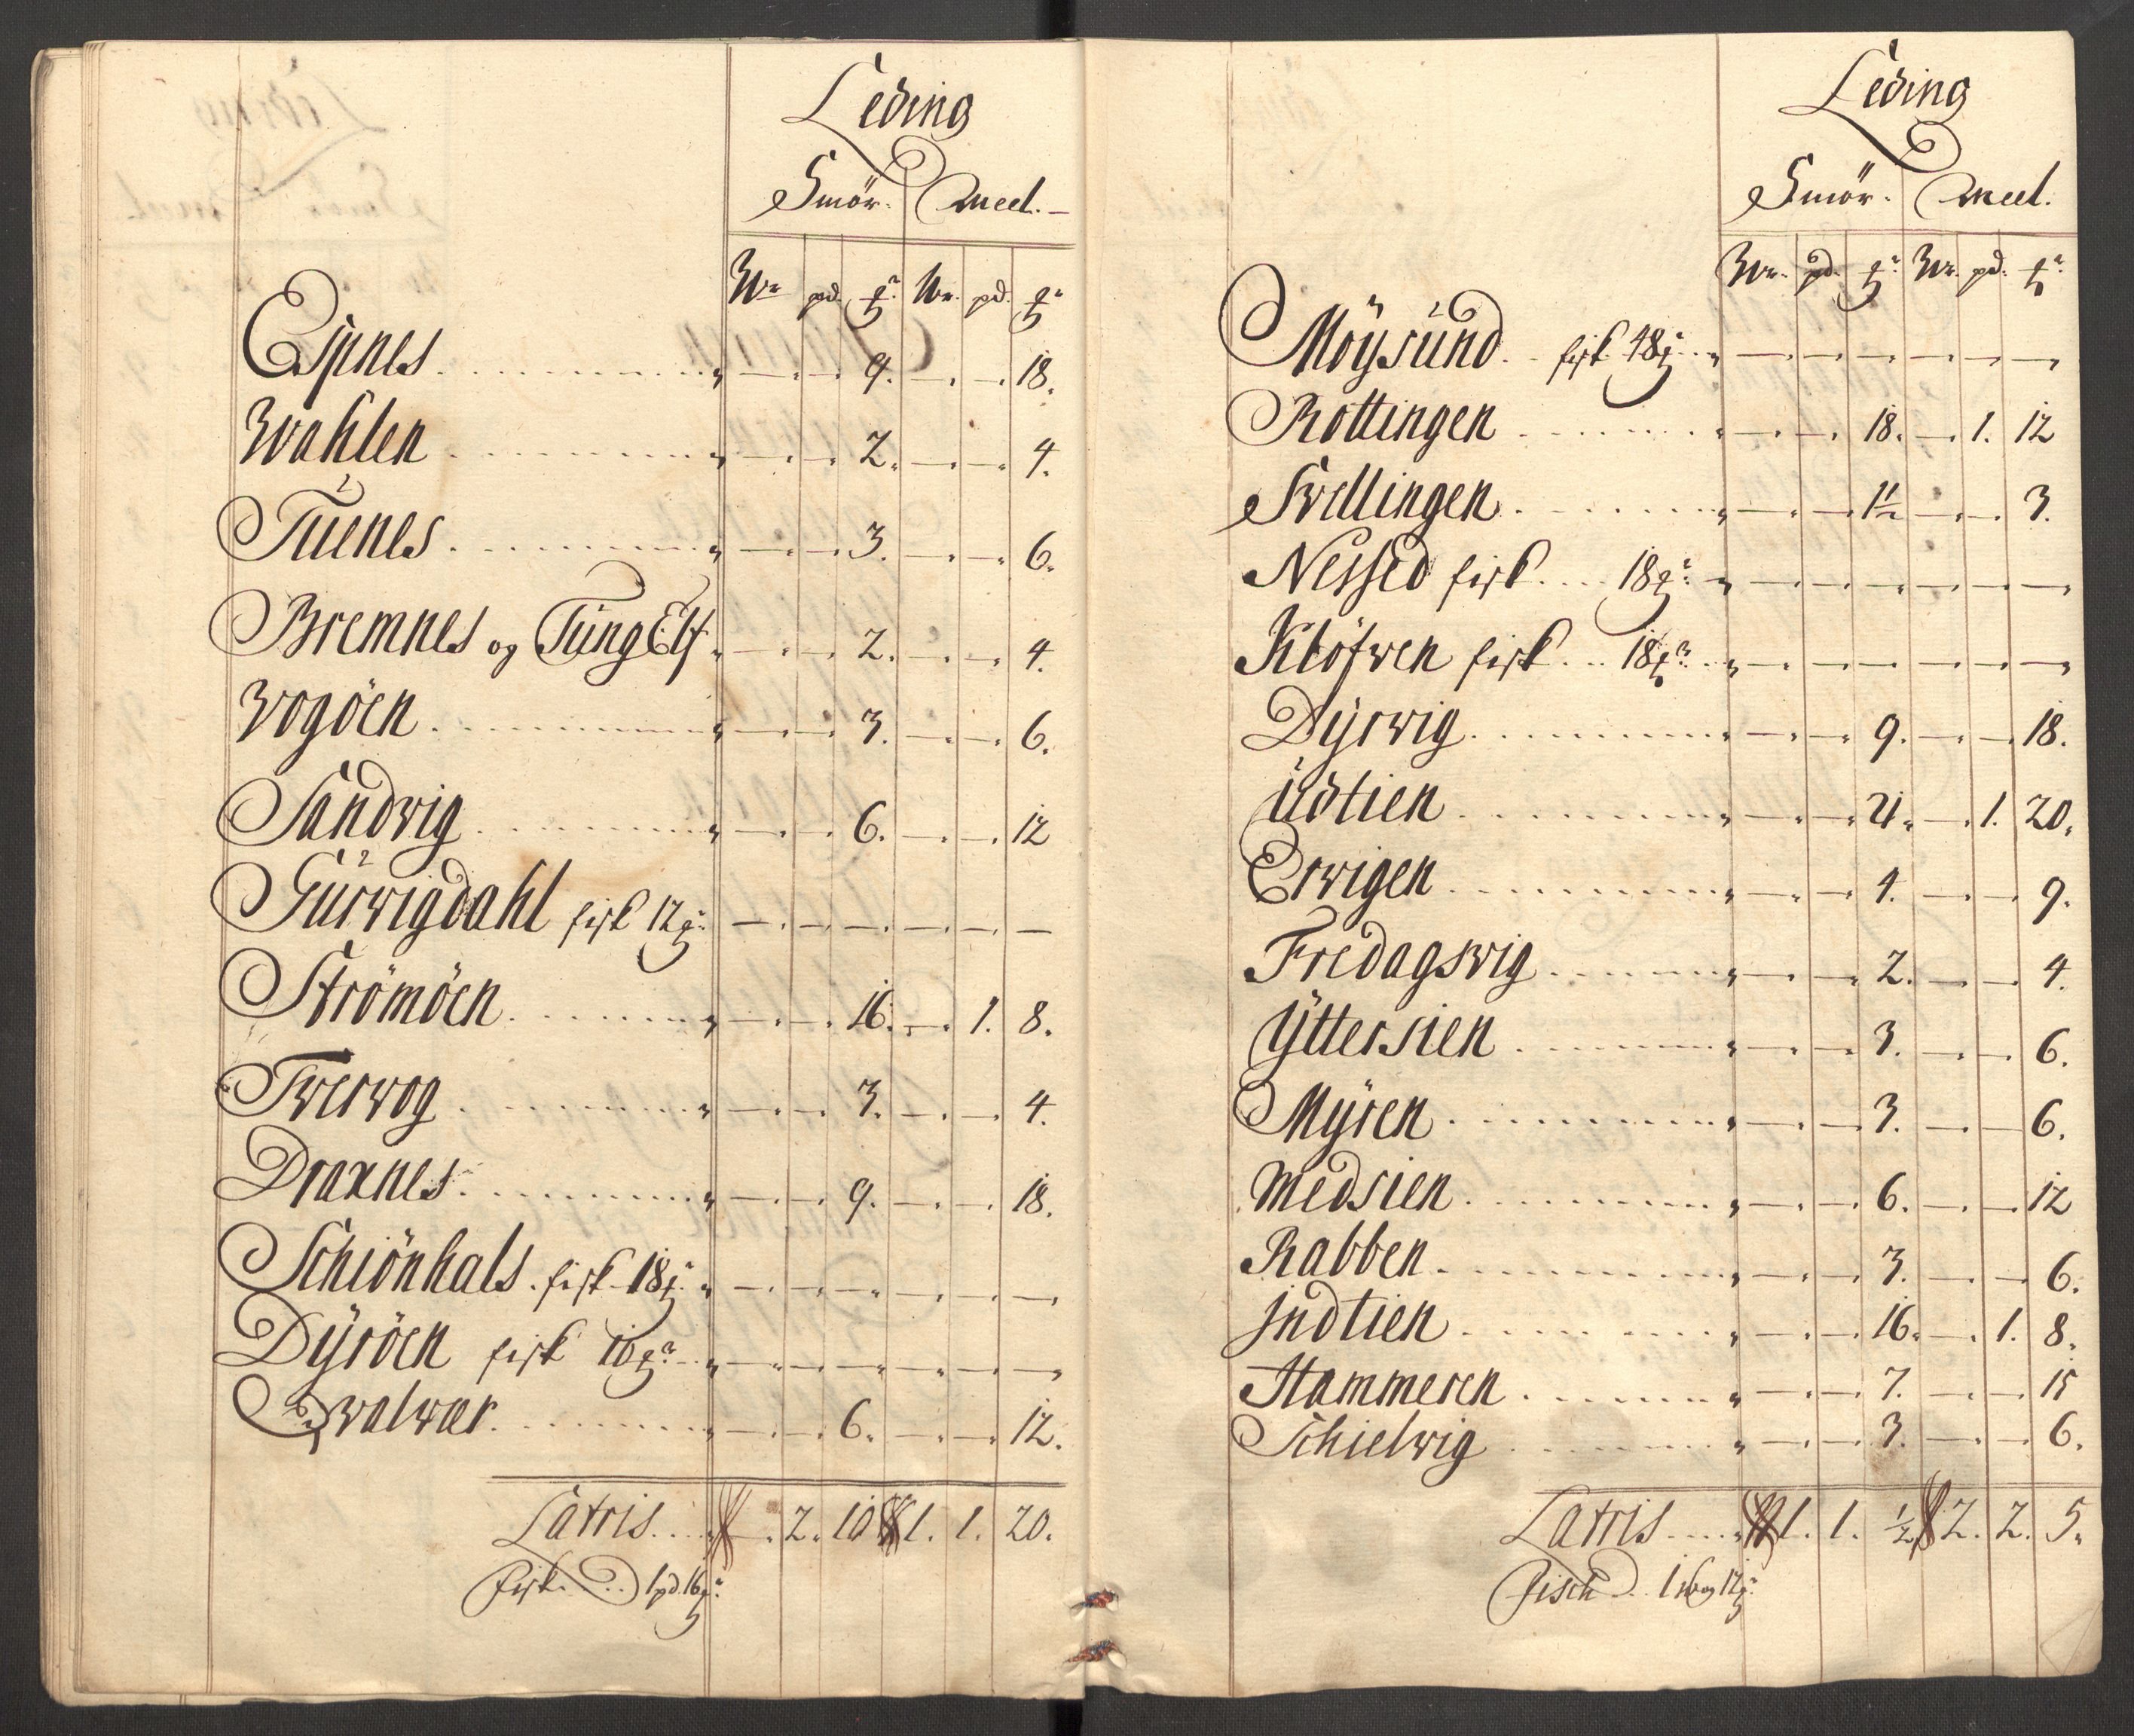 Leding
Smör. Meel.
Wr pd. ℔r. Wr. pd. ℔r
Espnes. 9. 18.
Wahlen 2. 4.
Tuenes. 3. 6.
Bremnes og TungElf 2. 4.
Wogöen. 3. 6.
Sandvig 6. 12
Gurvigdahl fisk 12 ℔r:
Strömöen. 16. 1. 8.
Twerwog 3. 4.
Draxnes. 9. 18.
Schiönhals. fisk 18 ℔r.
Dÿröen fisk 10 ℔r.
Qvalvær. 6. 12.
Latris. 2. 10 1. 1. 20.
Fisk. 1 pd 16 ℔r:
Leding
Smör. Meel.
Wr. pd. ℔r. Wr. pd. ℔r.
Möÿsund. fisk 48 ℔r.
Rottingen 18. 1. 12
Svellingen. 1½ 3.
Nessed fisk. 18 ℔r.
Klöfwen fisk. 18 ℔r.
Dÿrvig. 9. 18.
Udtien 21. 1. 20.
Ervigen 4. 9.
Fredagsvig 2. 4.
Ÿttersien 3. 6.
Mÿren 3. 6.
Medsien 6. 12
Rabben 3. 6.
Indtien 16. 1. 8.
Hammeren 7. 15
Schielvig 3. 6.
Latris 1. 1. ½ 2. 2. 5.
Fisch. 1 wog 12 ℔r.